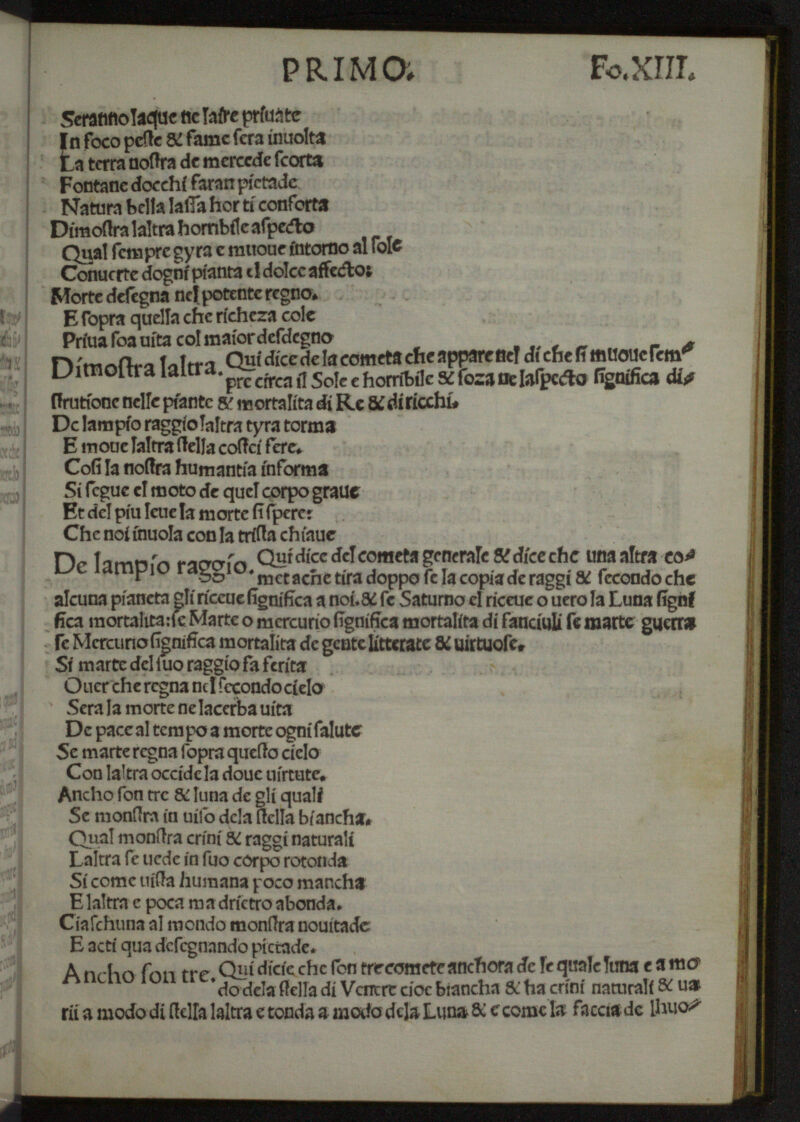 PRIMO. Fo.XIII.
Seranno laque ne laſre priuate
In foco peſte & fame ſera inuolta
La terra noſtra de mercede ſcorta
Fontane docchi faran pietade
Natura bella laſſa hor ti conforta
Dimoſtra laltra horribile aſpecto
Qual ſempre gyra e muoue intorno al ſole
Conuerte dogni pianta el dolce affecto:
Morte deſegna nel potente regno.
E ſopra quella che richeza cole
Priua ſoa uita col maior deſdegno
Dimoſtra laltra. Qui dice de la cometa che appare nel di che ſi muoue ſem-
pre circa il Sole e horribile & ſoza ne laſpecto ſignifica di-
ſtrutione nelle piante & mortalita di Re & di ricchi.
De lampio raggio laltra tyra torma
E moue laltra ſtella coſtei fere.
Coſi la noſtra humantia informa
Si ſegue el moto de quel corpo graue
Et del piu leue la morte ſi ſpere:
Che noi inuola con la triſta chiaue
De lampio raggio. Qui dice del cometa generale & dice che una altra co-
met ache tira doppo ſe la copia de raggi & ſecondo che
alcuna pianeta gli riceue ſignifica a noi. & ſe Saturno el riceue o uero la Luna ſigni
fica mortalita: ſe Marte o mercurio ſignifica mortalita di fanciuli ſe marte guerra
ſe Mercurio ſignifica mortalita de gente litterate & uirtuoſe.
Si marte del ſuo raggio fa ferita
Ouer che regna nel ſecondo cielo
Sera la morte ne lacerba uita
De pace al tempo a morte ogni ſalute
Se marte regna ſopra queſto cielo
Con laltra occide la doue uirtute.
Ancho ſon tre & luna de gli quali
Se monſtra in uiſo dela ſtella biancha.
Qual monſtra crini & raggi naturali
Laltra ſe uede in ſuo corpo rotonda
Si come uiſta humana poco mancha
E laltra e poca ma drietro abonda.
Ciaſchuna al mondo monſtra nouitade
E acti qua deſegnando pietade.
Ancho ſon tre. Qui dicie che ſon tre comete anchora de le quale luna e a mo
do dela ſtella di Venere cioe biancha & ha crini naturali & ua
rii a modo di ſtella laltra e tonda a modo dela Luna & e come la faccia de lhuo-